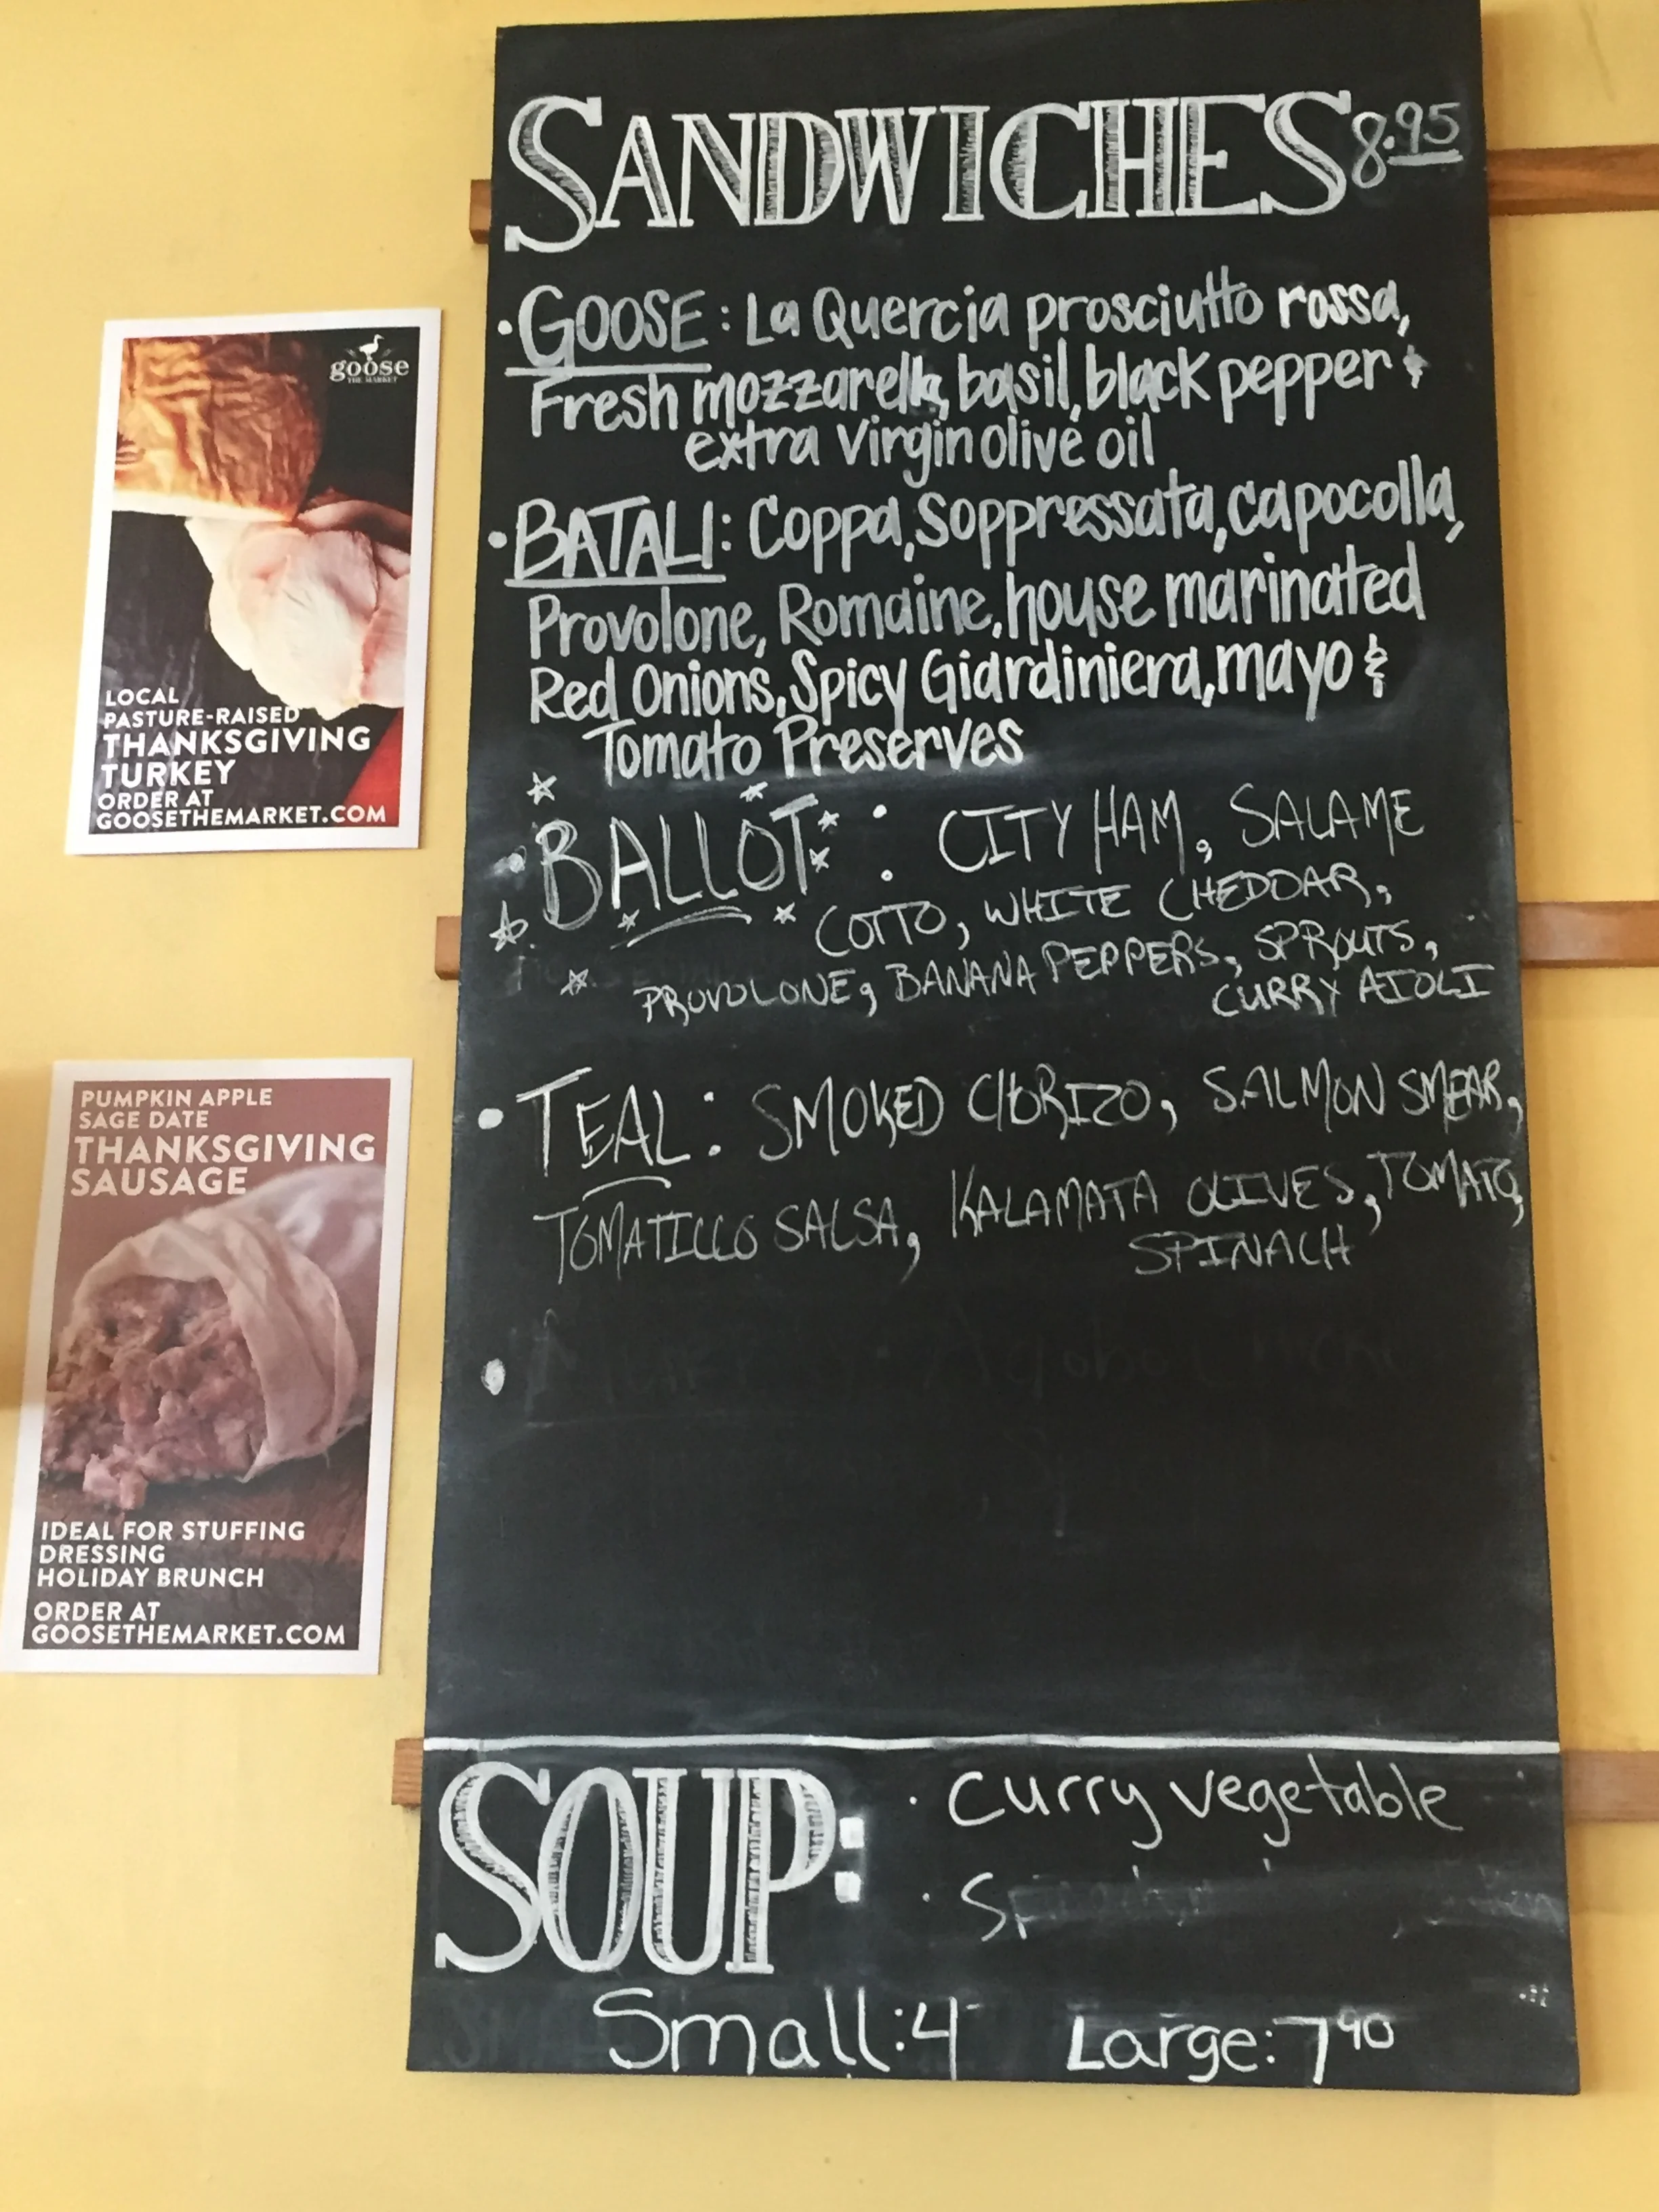 SANDWICHES 8.95
• GOOSE: La Quercia prosciutto rossa,
Fresh mozzarella, basil, black pepper &
extra virgin olive oil
• BATALI: Coppa, Soppressata, capocolla,
Provolone, Romaine, house marinated
Red Onions, Spicy Giardiniera, mayo &
Tomato Preserves
• BALLOT: CITY HAM, SALAME
COTTO, WHITE CHEDDAR,
PROVOLONE, BANANA PEPPERS, SPROUTS,
CURRY AIOLI
• TEAL: SMOKED CHORIZO, SALMON SMEAR,
TOMATILLO SALSA, KALAMATA OLIVES, TOMATO,
SPINACH
SOUP: • Curry vegetable
Small: 4 Large: 7 90
goose
THE MARKET
LOCAL
PASTURE-RAISED
THANKSGIVING
TURKEY
ORDER AT
GOOSETHEMARKET.COM
PUMPKIN APPLE
SAGE DATE
THANKSGIVING
SAUSAGE
IDEAL FOR STUFFING
DRESSING
HOLIDAY BRUNCH
ORDER AT
GOOSETHEMARKET.COM